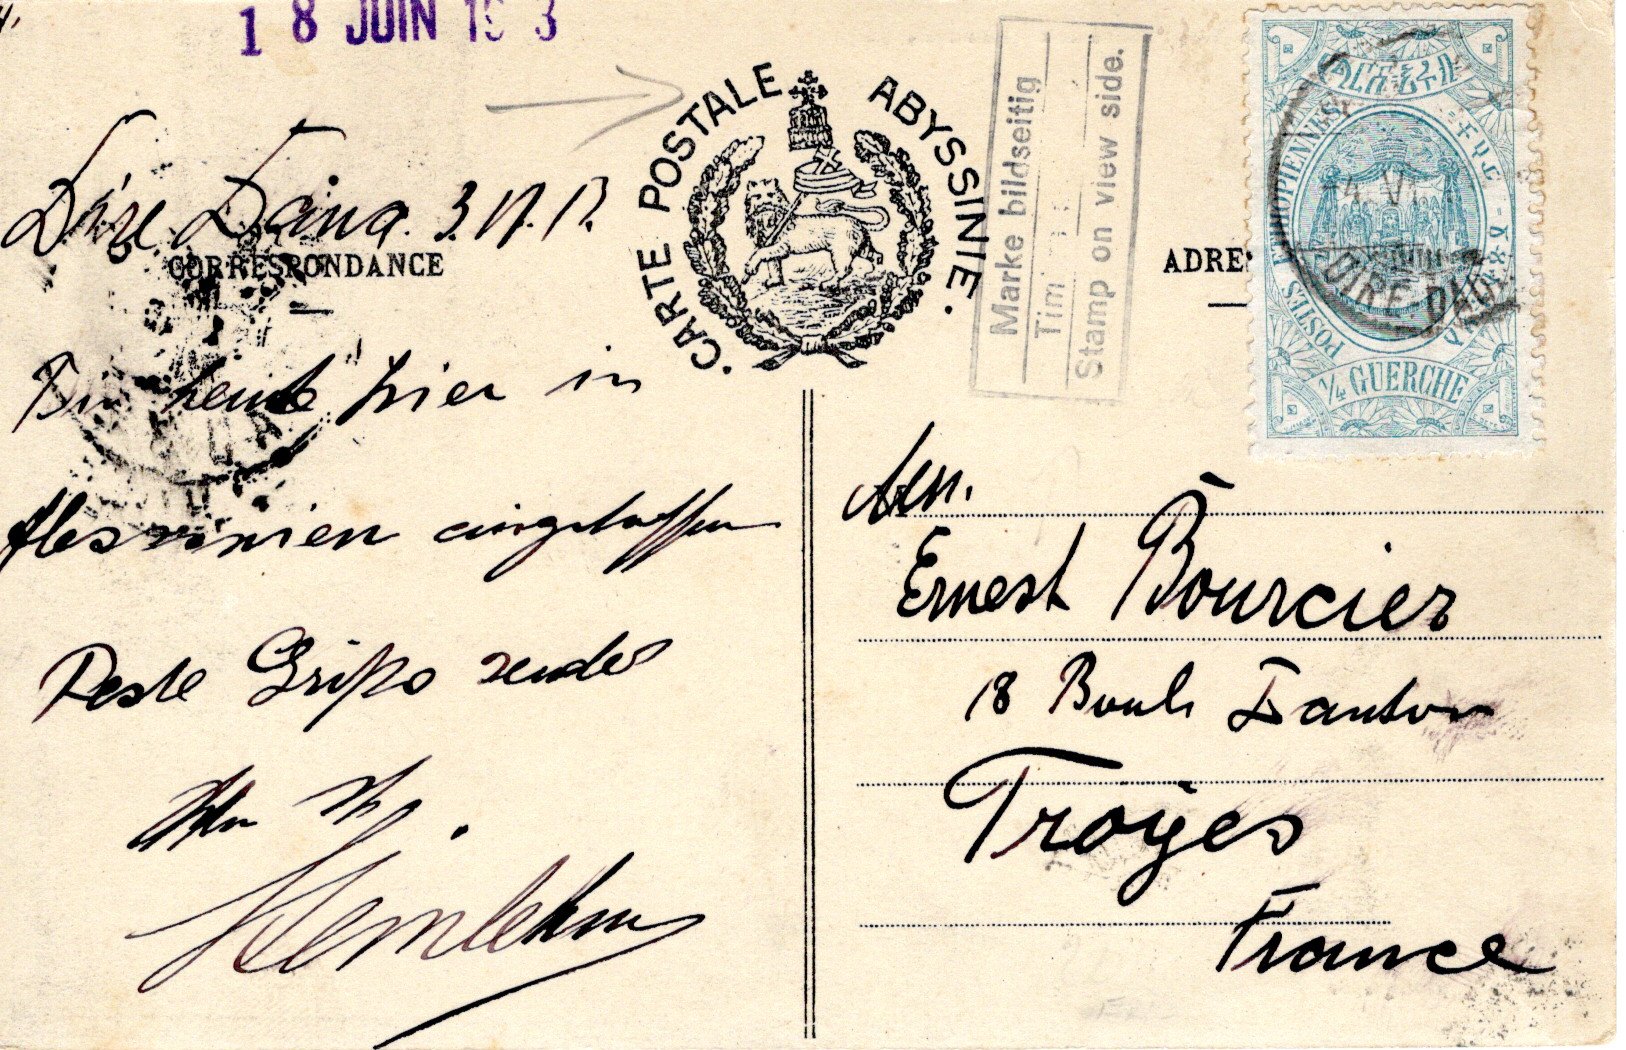 18 JUIN 19 3
CARTE POSTALE ABYSSINIE.
Marke bildseitig
Tim
Stamp on view side.
POSTES ETHIOPIENNES
¼ GUERCHE
DIRE-DAOUA
Dire Daua.
CORRESPONDANCE
Bin heute hier in
eingetroffen
Beste Grüße sendet
ADRE
Ernest Bourcier
18 Boul. Danton
Troyes
France